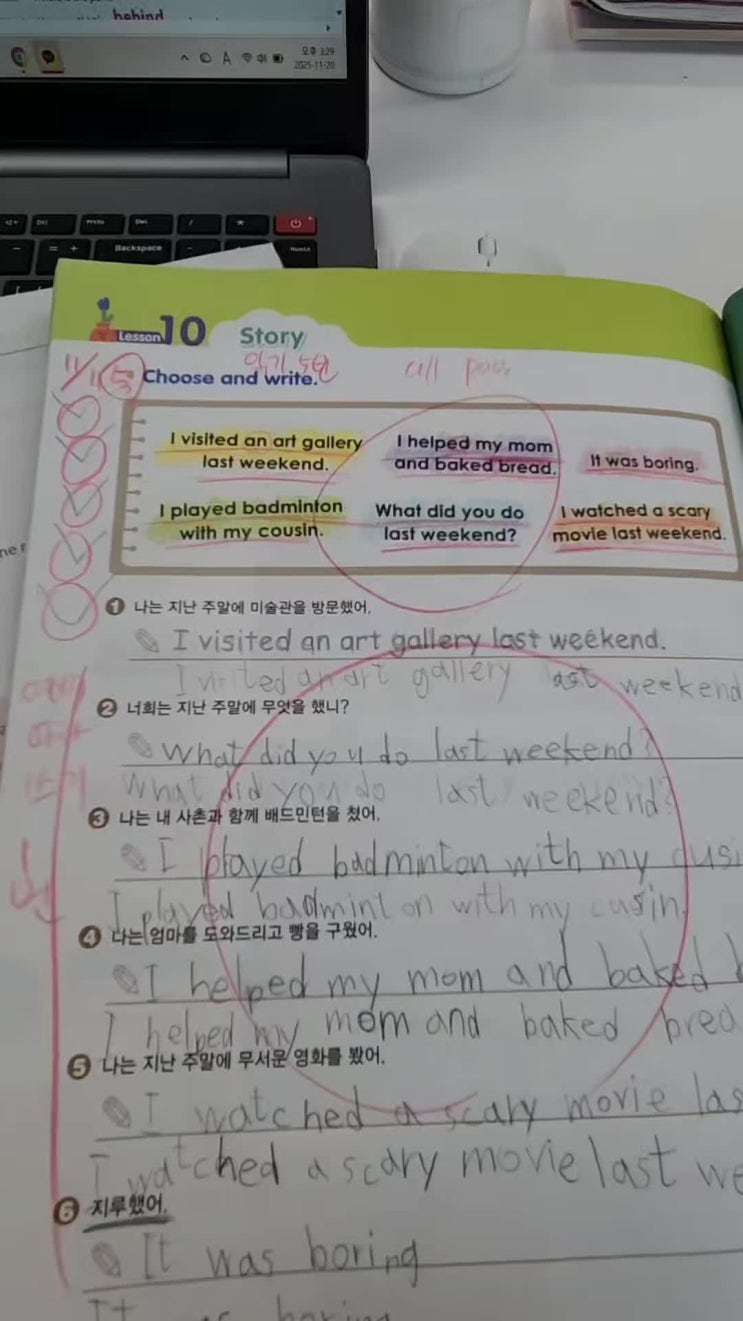 behind
A
오후 3:29
2025-11-20
PrtSc
Del
/
*
- = +
Backspace
-
NumLk
Lesson 10 Story
읽기 5번
all pass
11/1
Choose and write.
I visited an art gallery last weekend.
I helped my mom and baked bread.
It was boring.
I played badminton with my cousin.
What did you do last weekend?
I watched a scary movie last weekend.
1 나는 지난 주말에 미술관을 방문했어.
I visited an art gallery last weekend.
I visited an art gallery last weekend
2 너희는 지난 주말에 무엇을 했니?
What did you do last weekend?
What did you do last weekend?
따라
쓰기
3 나는 내 사촌과 함께 배드민턴을 쳤어.
I played badminton with my cusi
I played badminton with my cusin.
4 나는 엄마를 도와드리고 빵을 구웠어.
I helped my mom and baked b
I helped my mom and baked brea
5 나는 지난 주말에 무서운 영화를 봤어.
I watched a scary movie las
I watched a scary movie last we
6 지루했어.
It was boring
It boring